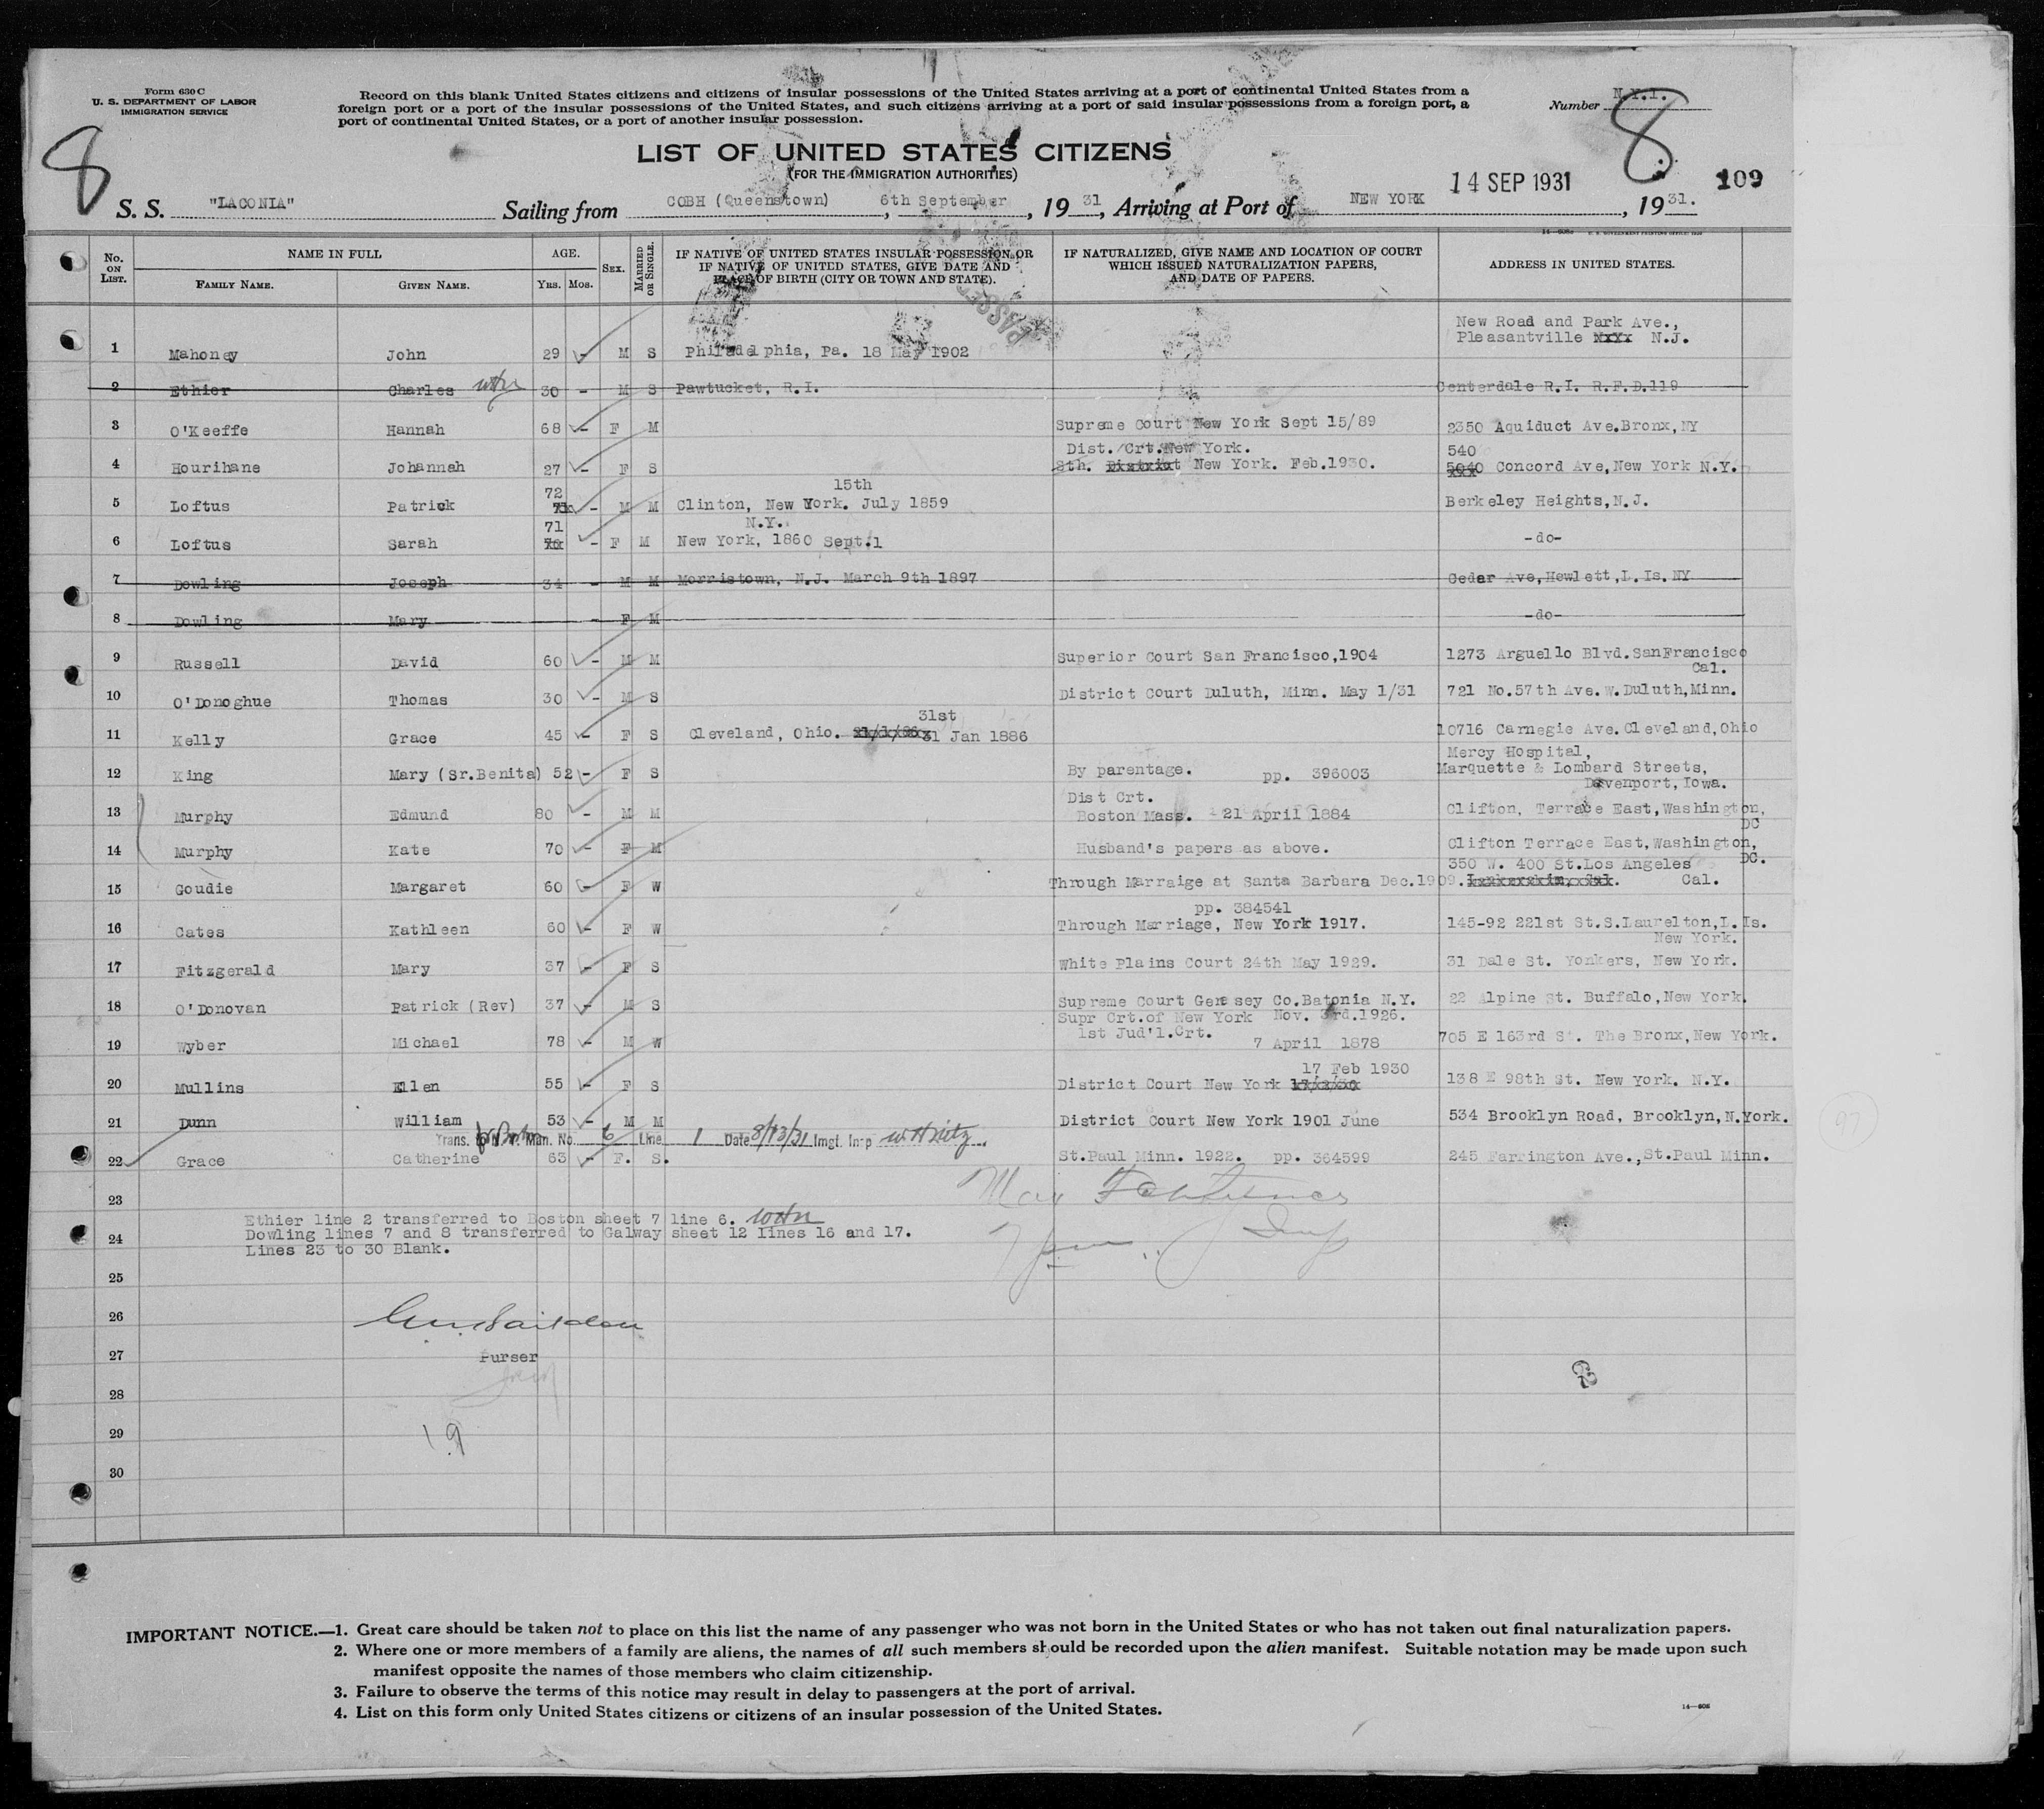 Form 630 C
U. S. DEPARTMENT OF LABOR
IMMIGRATION SERVICE
Record on this blank United States citizens and citizens of insular possessions of the United States arriving at a port of continental United States from a
foreign port or a port of the insular possessions of the United States, and such citizens arriving at a port of said insular possessions from a foreign port, a
port of continental United States, or a port of another insular possession.
Number N.Y.1.
8
8
LIST OF UNITED STATES CITIZENS
(FOR THE IMMIGRATION AUTHORITIES)
14 SEP 1931
109
S. S. "LACONIA" Sailing from COBH (Queenstown) 6th September, 1931, Arriving at Port of NEW YORK, 1931.
No. ON LIST. NAME IN FULL AGE. SEX. MARRIED OR SINGLE. IF NATIVE OF UNITED STATES INSULAR POSSESSION OR IF NATIVE OF UNITED STATES, GIVE DATE AND PLACE OF BIRTH (CITY OR TOWN AND STATE). IF NATURALIZED, GIVE NAME AND LOCATION OF COURT WHICH ISSUED NATURALIZATION PAPERS, AND DATE OF PAPERS. ADDRESS IN UNITED STATES.
FAMILY NAME. GIVEN NAME. YRS. MOS.
PASSED
New Road and Park Ave.,
1 Mahoney John 29 - M S Philadelphia, Pa. 18 May 1902 Pleasantville N.J.
2 Ethier Charles 30 - M S Pawtucket, R.I. Centerdale R.I. R.F.D.119
3 O'Keeffe Hannah 68 - F M Supreme Court New York Sept 15/89 2350 Aquiduct Ave.Bronx,NY
Dist./Crt.New York. 540
4 Hourihane Johannah 27 - F S Sth. District New York. Feb.1930. 5040 Concord Ave,New York N.Y.
72 15th
5 Loftus Patrick - M M Clinton, New York. July 1859 Berkeley Heights,N.J.
71 N.Y.
6 Loftus Sarah 70 - F M New York, 1860 Sept.1 -do-
7 Dowling Joseph 34 - M M Morristown, N.J. March 9th 1897 Cedar Ave,Hewlett,L.Is.NY
8 Dowling Mary - F M -do-
9 Russell David 60 - M M Superior Court San Francisco,1904 1273 Arguello Blvd.SanFrancisco
Cal.
10 O'Donoghue Thomas 30 - M S District Court Duluth, Minn. May 1/31 721 No.57th Ave.W.Duluth,Minn.
31st
11 Kelly Grace 45 - F S Cleveland, Ohio. 31 Jan 1886 10716 Carnegie Ave.Cleveland,Ohio
Mercy Hospital,
12 King Mary (Sr.Benita) 52 - F S By parentage. pp. 396003 Marquette & Lombard Streets,
Davenport, Iowa.
Dist Crt.
13 Murphy Edmund 80 - M M Boston Mass. 21 April 1884 Clifton, Terrace East,Washington,
DC
14 Murphy Kate 70 - F M Husband's papers as above. Clifton Terrace East,Washington,
DC.
350 W. 400 St.Los Angeles
15 Goudie Margaret 60 - F W Through Marraige at Santa Barbara Dec.1909. Cal.
pp. 384541
16 Cates Kathleen 60 - F W Through Marriage, New York 1917. 145-92 221st St.S.Laurelton,L.Is.
New York.
17 Fitzgerald Mary 37 - F S White Plains Court 24th May 1929. 31 Dale St. Yonkers, New York.
18 O'Donovan Patrick (Rev) 37 - M S Supreme Court Genesey Co.Batonia N.Y. 22 Alpine St. Buffalo,New York.
Supr Crt.of New York Nov. 3rd.1926.
1st Jud'l.Crt.
19 Wyber Michael 78 - M W 7 April 1878 705 E 163rd St. The Bronx,New York.
17 Feb 1930
20 Mullins Ellen 55 - F S District Court New York 17/2/30 138 E 98th St. New York. N.Y.
21 Dunn William 53 - M M District Court New York 1901 June 534 Brooklyn Road, Brooklyn,N.York.
Trans. Man. No. 6 Line 1 Date 8/13/31 Imgt. Insp
22 Grace Catherine 63 - F. S. St.Paul Minn. 1922. pp. 364599 245 Farrington Ave.,St.Paul Minn.
23
Ethier line 2 transferred to Boston sheet 7 line 6.
24 Dowling lines 7 and 8 transferred to Galway sheet 12 lines 16 and 17.
Lines 23 to 30 Blank.
25
26
27 Purser
28
29
19
30
97
IMPORTANT NOTICE.—1. Great care should be taken not to place on this list the name of any passenger who was not born in the United States or who has not taken out final naturalization papers.
2. Where one or more members of a family are aliens, the names of all such members should be recorded upon the alien manifest. Suitable notation may be made upon such
manifest opposite the names of those members who claim citizenship.
3. Failure to observe the terms of this notice may result in delay to passengers at the port of arrival.
4. List on this form only United States citizens or citizens of an insular possession of the United States.